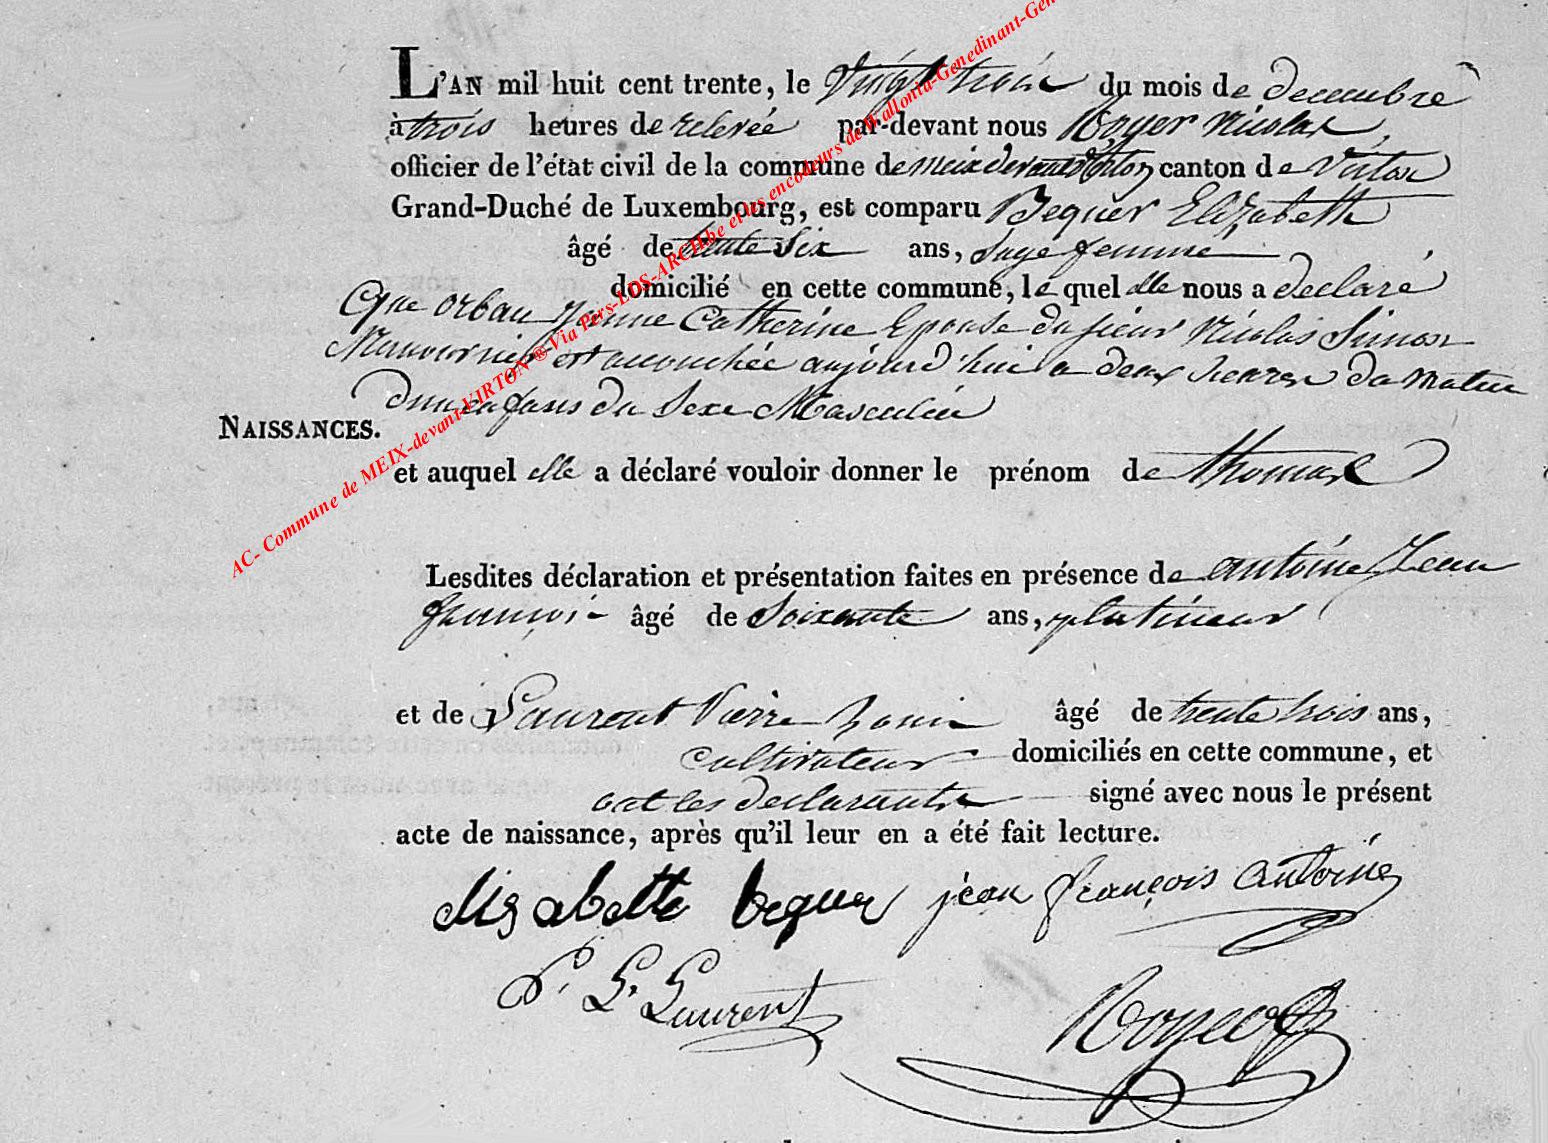 L'AN mil huit cent trente, le vingt trois du mois de decembre
à trois heures de relevée par-devant nous Royer Nicolas,
officier de l'état civil de la commune de meix devant Virton canton de Virton
Grand-Duché de Luxembourg, est comparu Bequer Elizabeth
âgé de trente six ans, sage femme
domicilié en cette commune, le quel elle nous a declaré
Que orban Jeanne Catherine Epouse du sieur Nicolas Simon
Manouvrier est accouchée aujourd'hui a deux heures du matin
d'un enfans du Sexe Masculin
NAISSANCES.
et auquel elle a déclaré vouloir donner le prénom de thomas
Lesdites déclaration et présentation faites en présence de antoine Jean
françois âgé de Soixante ans, platineur
et de Laurent Pierre Louis âgé de trente trois ans,
cultivateur domiciliés en cette commune, et
ont les declarants signé avec nous le présent
acte de naissance, après qu'il leur en a été fait lecture.
elisabette bequer jean françois antoine
P. L. Laurent
Royer
AC- Commune de MEIX-devant-VIRTON ® Via Pers-LDS-ARCH.be et les encodeurs de Wallonia-Genedinant-Gen